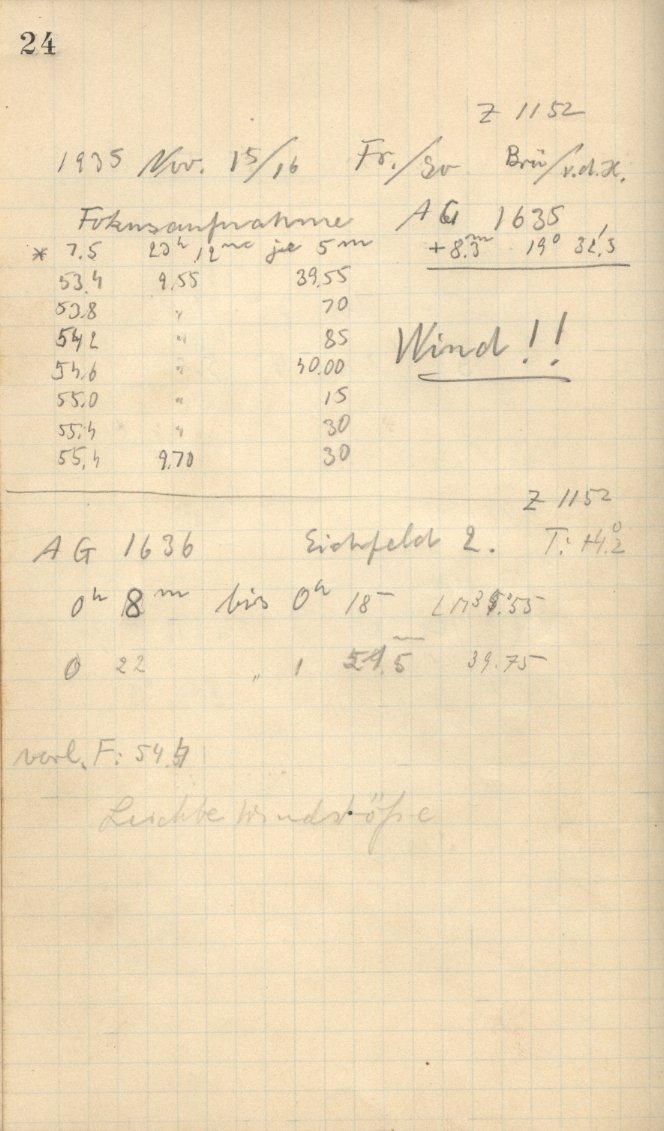 24
Z 1152
1935 Nov. 15/16 Fr./So Brü/v.d.H.
Fokusaufnahme AG 1635
* 7.5 23h 12m je 5m +8.3m 19° 32',5
53.4 9.55 39.55
53.8 " 70
54.2 " 85
54.6 " 40.00
55.0 " 15
55.4 " 30
55.4 9.70 30
Wind!!
Z 1152
AG 1636 Eichfeld 2. T: +4.°2
0h 8m bis 0h 18m
0 22 " 1 39.75
vorl. F: 54.4
Leichte Windstöße